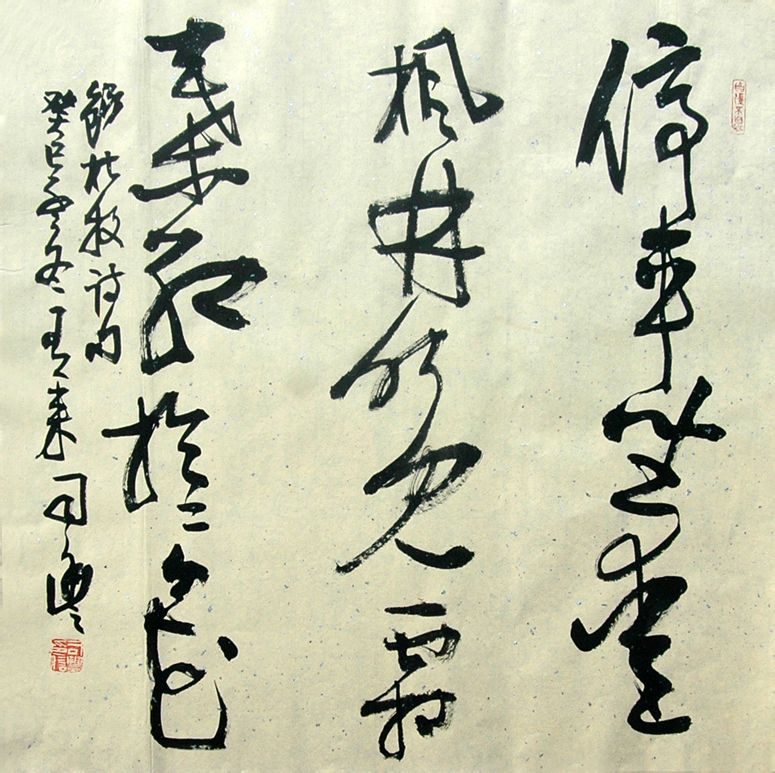 停車坐愛
楓林晚霜
葉紅於二月花
錄杜牧詩句
癸巳冬